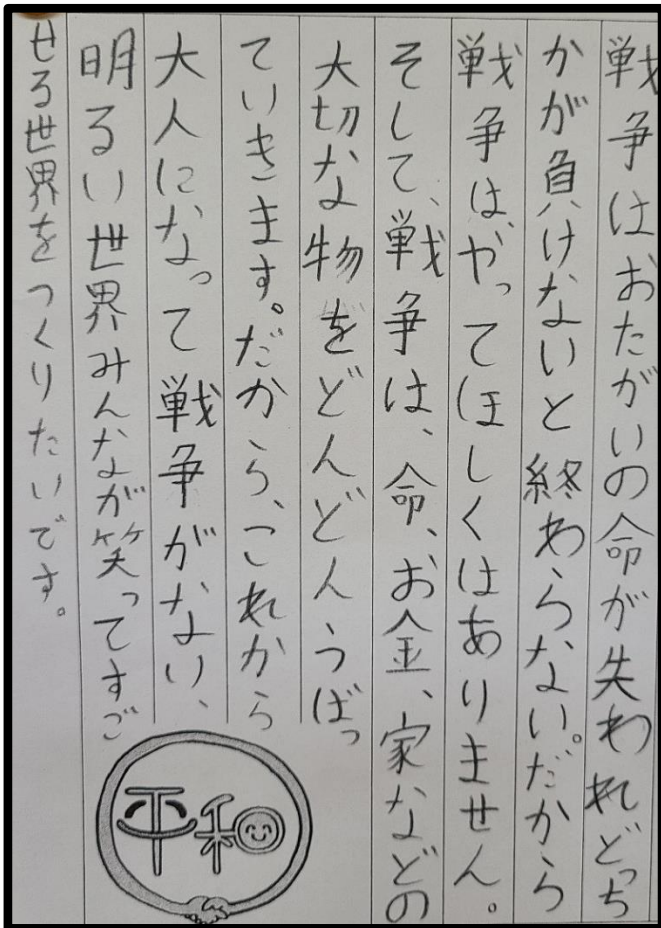 戦争はおたがいの命が失われどっち
かが負けないと終わらない。だから
戦争はやってほしくはありません。
そして、戦争は、命、お金、家などの
大切な物をどんどんうばっ
ていきます。だから、これから
大人になって戦争がない、
明るい世界みんなが笑ってすご
せる世界をつくりたいです。
平和